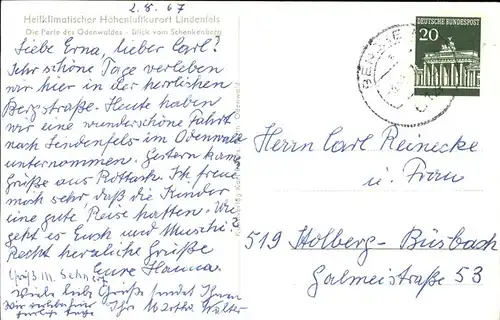 2.8.67
Heilklimatischer Höhenluftkurort Lindenfels
Die Perle des Odenwaldes - Blick vom Schenkenberg
Liebe Erna, lieber Carl!
Sehr schöne Tage verleben
wir hier in der herrlichen
Bergstraße. Heute haben
wir eine wunderschöne Fahrt
nach Lindenfels im Odenwald
unternommen. Gestern kamen
Grüße aus Rottach. Ich freue
mich sehr, daß die Kinder
eine gute Reise hatten. Wie
geht es Euch und
Recht herzliche Grüße
Eure Hanna.
Viele liebe Grüße sendet Ihnen
Ihr Walter
DEUTSCHE BUNDESPOST
20
Herrn Carl Reinecke
u. Frau
519 Stolberg-Büsbach
Galmeistraße 53